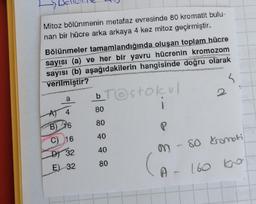 Mitoz bölünmenin metafaz evresinde 80 kromatit bulu-
nan bir hücre arka arkaya 4 kez mitoz geçirmiştir.
Bölünmeler tamamlandığında oluşan toplam hücre
sayısı (a) ve her bir yavru hücrenin kromozom
sayısı (b) aşağıdakilerin hangisinde doğru olarak
verilmiştir?
a b
A) 4 80
B) 16 80
C) 16 40
D) 32 40
E) 32 80
i
P
m - 80 kromati
A - 160